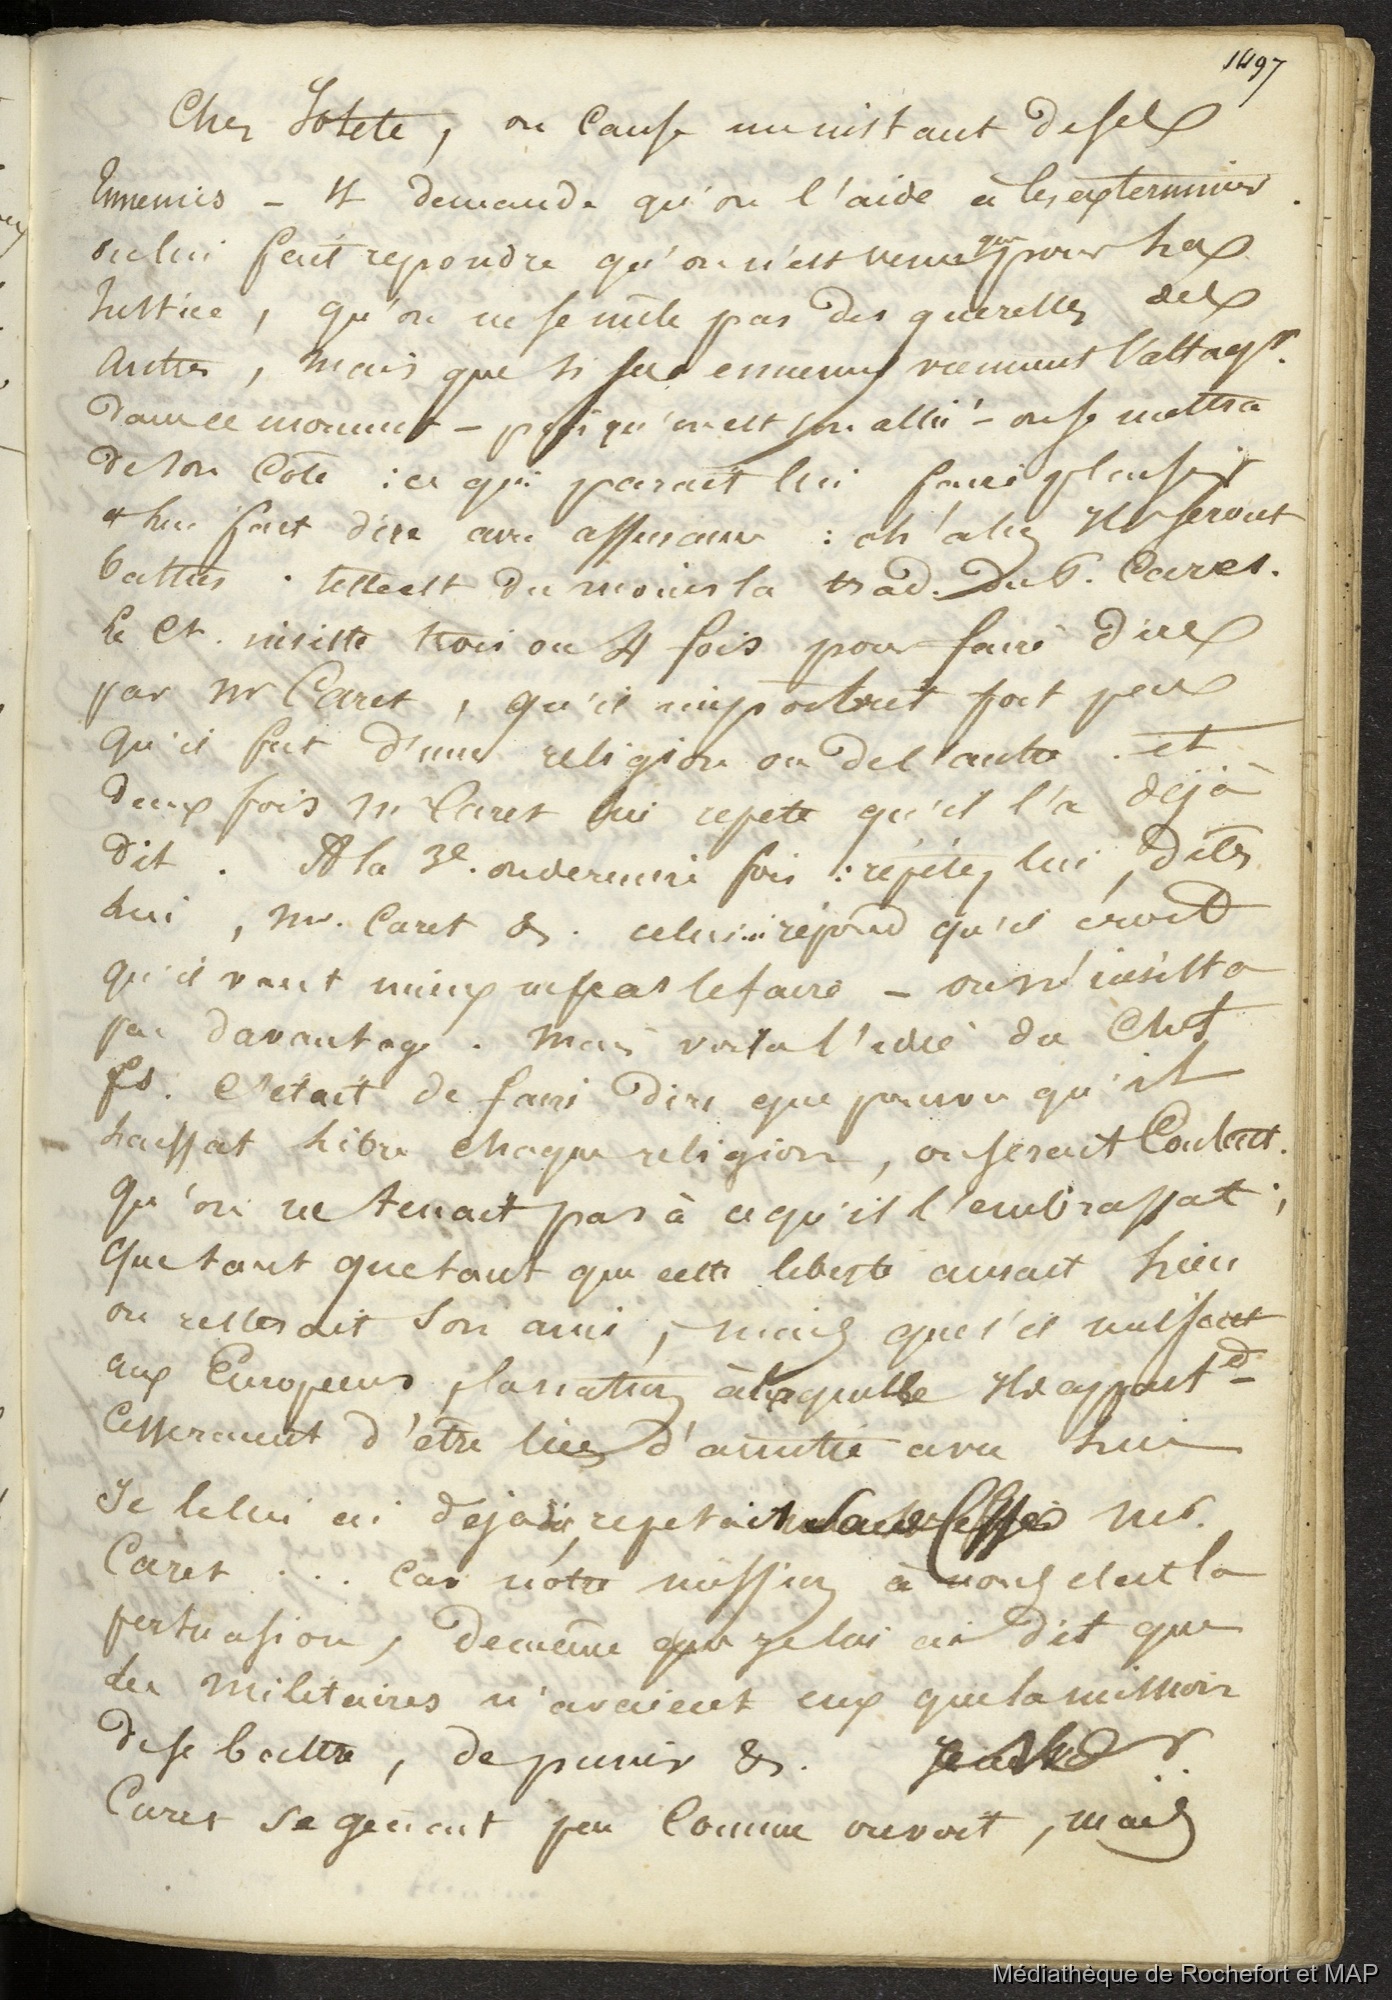 1497
Chez Iotete, on cause un instant de ses
Ennemis - Il demande qu'on l'aide à les exterminer.
on lui fait repondre qu'on n'est venu que pour la
Justice, qu'on ne se mêle pas des querelles des
autres, mais que si ses ennemis viennent l'attaqr.
dans ce moment - puisqu'on est son allié - on se mettra
de son Côté : ce qui parait lui faire plaisir
& lui fait dire avec assurance : ah! alez Ils seront
battus. telle est du moins la trad. du P. Caret.
Le Ct. insiste trois ou 4 fois pour faire dire
par Mr Caret, qu'il importait fort peu
qu'il fut d'une religion ou de l'autre. et
deux fois Mr Caret lui repete qu'il l'a déjà
dit. A la 3e. ou derniere fois : répétez lui, dites
lui, Mr. Caret &. celui-ci répond qu'il croit
qu'il vaut mieux ne pas le faire - on n'insista
pas davantage. Mais voila l'idée du Ct
fs. C'était de faire dire que pourvu qu'il
laissat libre chaque religion, on serait Content.
qu'on ne tenait pas à ce qu'il l'embrassat ;
que tant que tant que cette liberté aurait lieu
on resterait son ami, mais que s'il nuisait
aux Européens, la nation à laquelle Ils appart
cesseraient d'être liés d'amitié avec lui
Je le lui ai déja dit, repetait sans Cesse Mr.
Caret ... Car nôtre mission à nous c'est la
persuasion, de même que je lui ai dit que
les Militaires n'avaient eux que la mission
de se battre, de punir &.
Caret se gênant peu Comme on voit, mais
Médiathèque de Rochefort et MAP